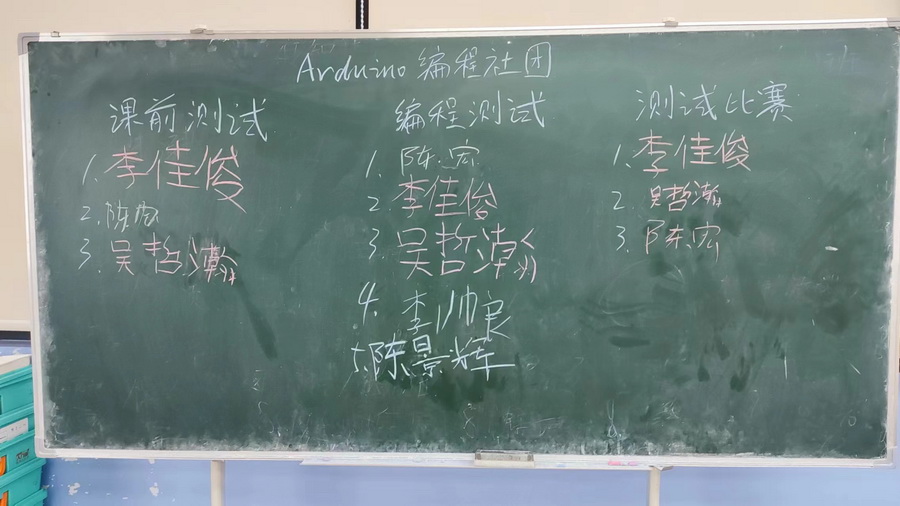 Arduino编程社团
课前测试
1. 李佳俊
2. 陈宏
3. 吴哲瀚
编程测试
1. 陈宏
2. 李佳俊
3. 吴哲瀚
4. 李帅良
5. 陈景辉
测试比赛
1. 李佳俊
2. 吴哲瀚
3. 陈宏